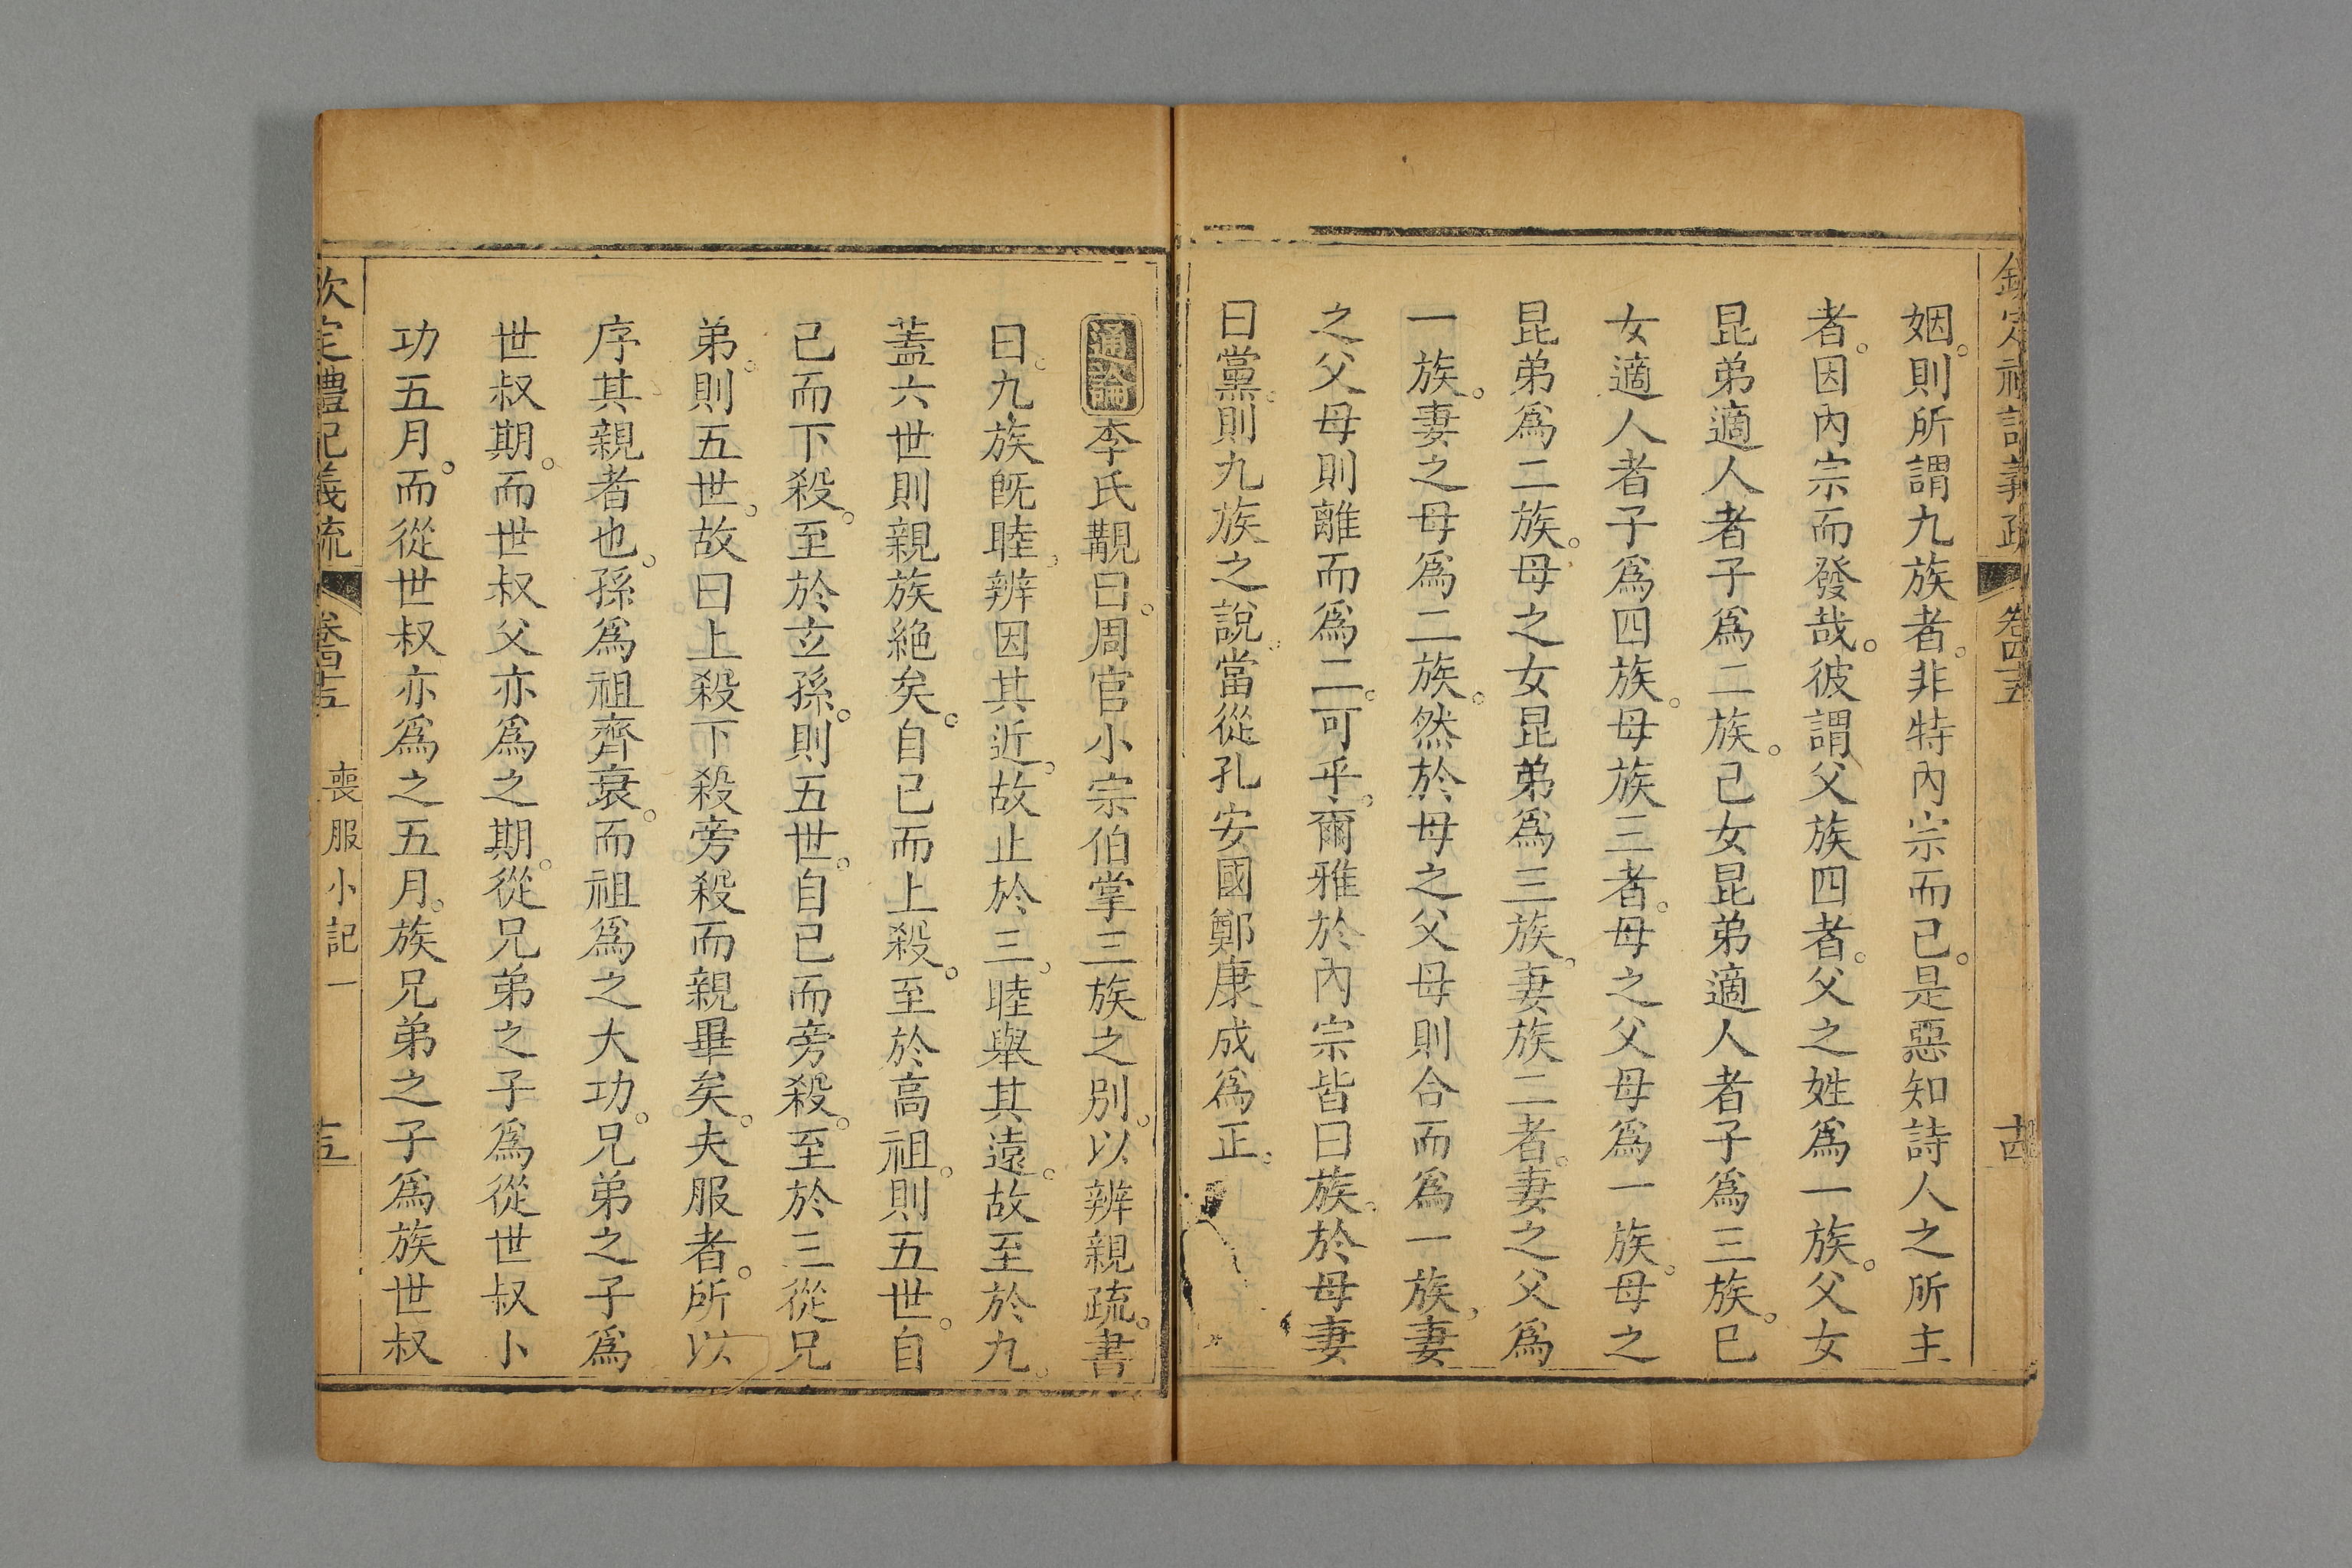 欽定禮記義疏 卷四十五 十四
姻。則所謂九族者。非特內宗而已。是惡知詩人之所主
者。因內宗而發哉。彼謂父族四者。父之姓爲一族。父女
昆弟適人者子爲二族。己女昆弟適人者子爲三族。已
女適人者子爲四族。母族三者。母之父母爲一族。母之
昆弟爲二族。母之女昆弟爲三族。妻族二者。妻之父爲
一族。妻之母爲二族。然於母之父母則合而爲一族。妻
之父母則離而爲二。可乎。爾雅於內宗皆曰族。於母妻
曰黨。則九族之說。當從孔安國鄭康成爲正。
通論 李氏覯曰。周官小宗伯掌三族之別。以辨親疏。書
曰。九族旣睦。辨因其近。故止於三。睦舉其遠。故至於九。
蓋六世則親族絶矣。自己而上殺。至於高祖。則五世。自
己而下殺。至於玄孫。則五世。自己而旁殺。至於三從兄
弟。則五世。故曰上殺下殺旁殺而親畢矣。夫服者。所以
序其親者也。孫爲祖齊衰。而祖爲之大功。兄弟之子爲
世叔期。而世叔父亦爲之期。從兄弟之子爲從世叔小
功五月。而從世叔亦爲之五月。族兄弟之子爲族世叔
欽定禮記義疏 卷四十五 喪服小記一 十五